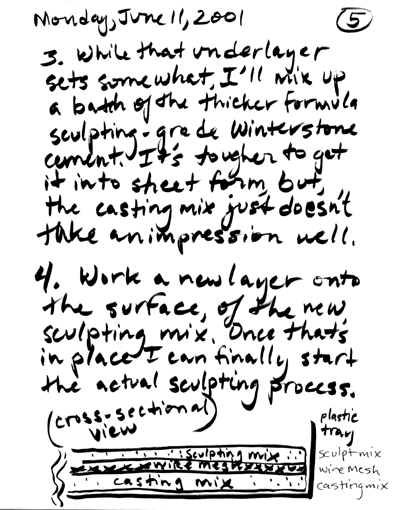 Monday, June 11, 2001
5
3. While that underlayer
sets somewhat, I'll mix up
a batch of the thicker formula
sculpting-grade Winterstone
cement. It's tougher to get
it into sheet form, but,
the casting mix just doesn't
take an impression well.
4. Work a new layer onto
the surface, of the new
sculpting mix. Once that's
in place I can finally start
the actual sculpting process.
(cross-sectional
view)
plastic
tray
sculpting mix
wire mesh
casting mix
sculpt mix
wire mesh
casting mix